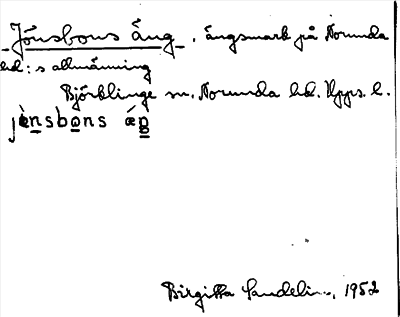 Jönsbons äng, ängsmark på Norunda
hd:s allmänning
Björklinge sn. Norunda hd. Upps. l.
jönsbons äŋ
Birgitta Sandelin, 1952